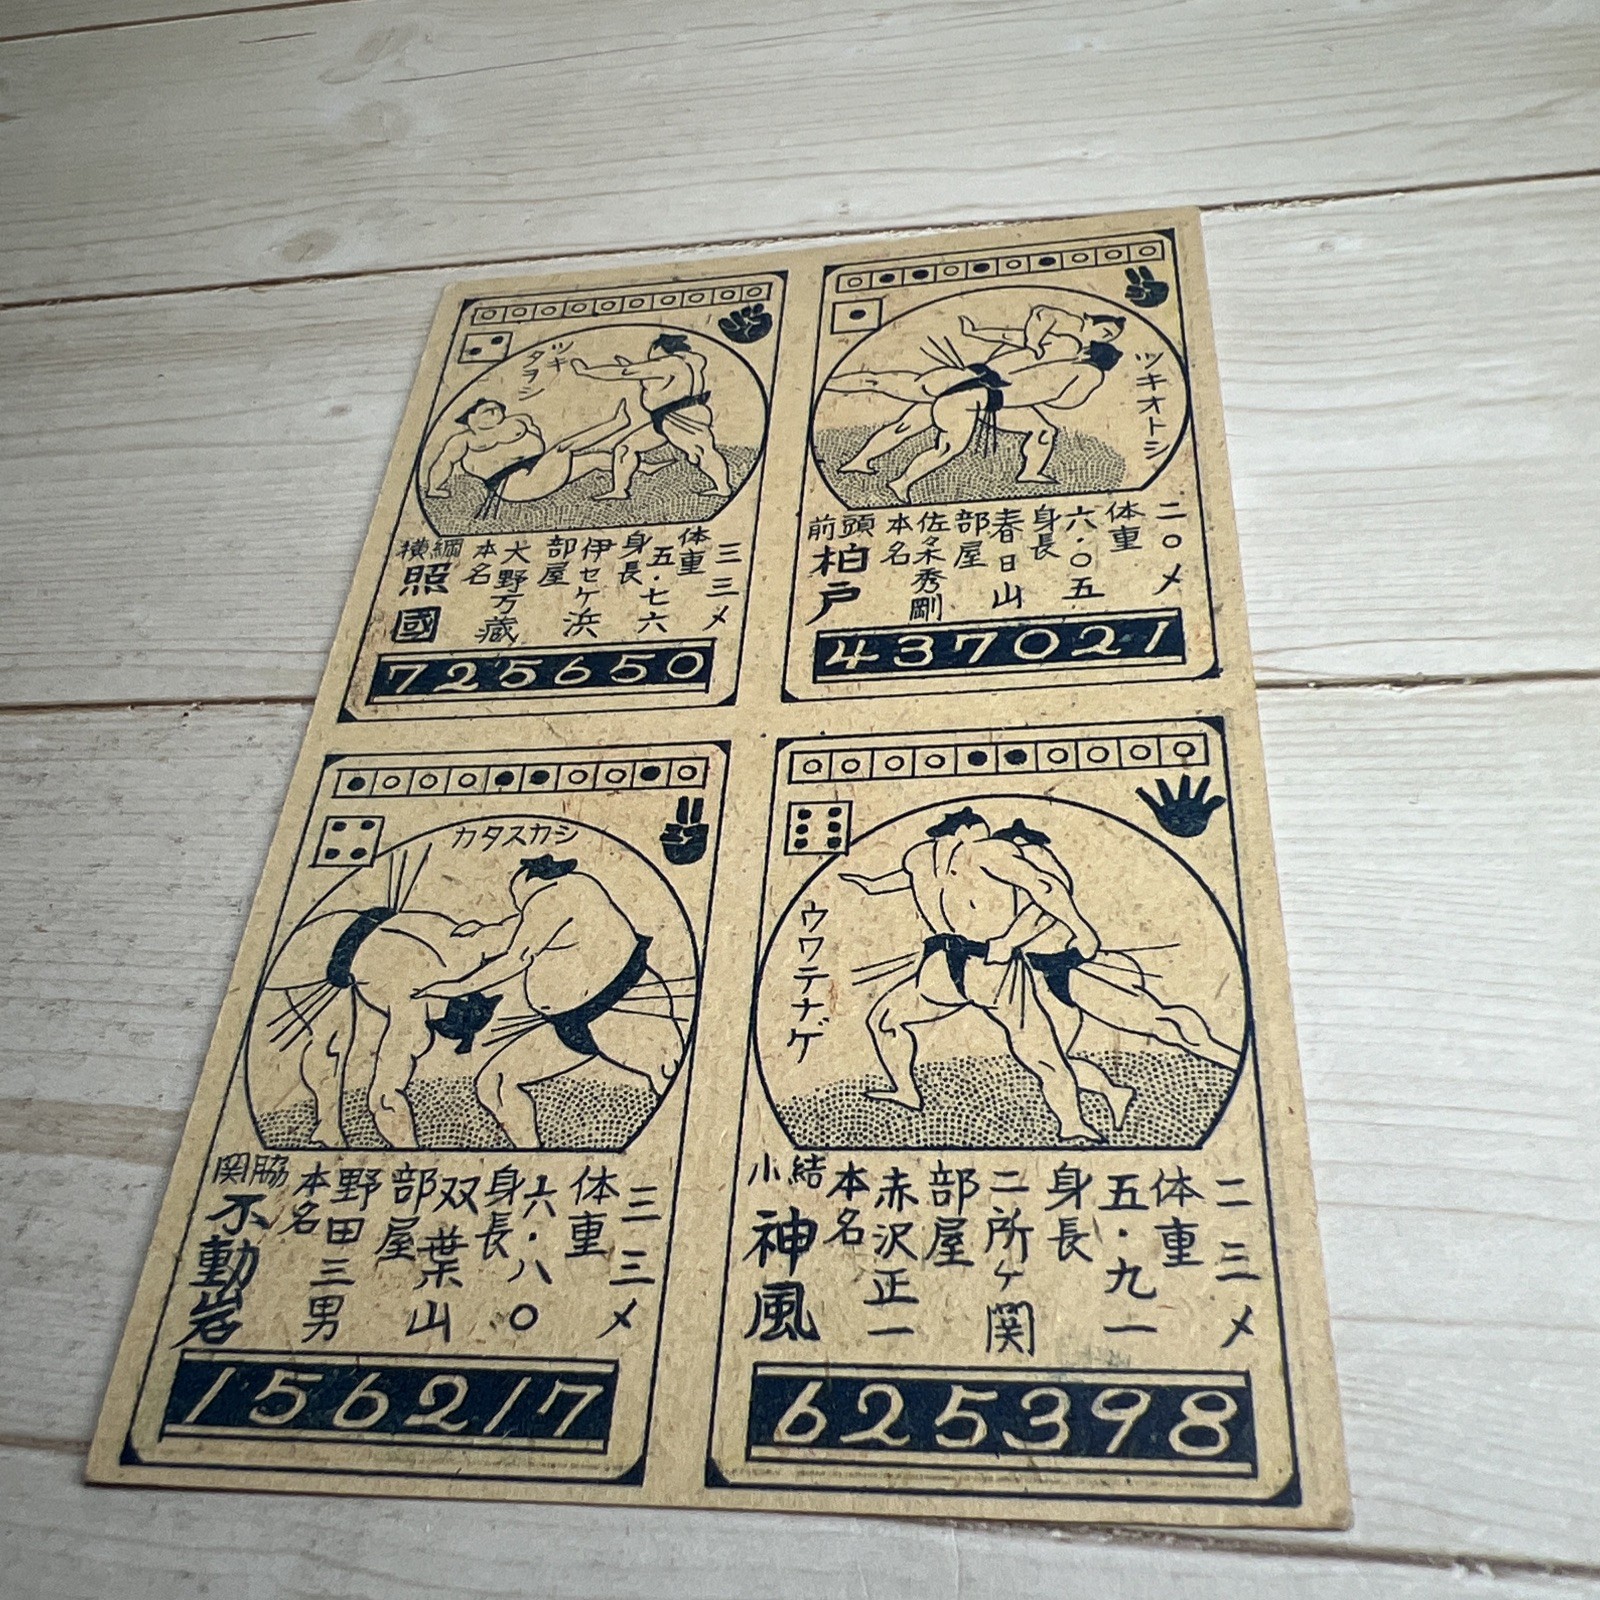 ツキ
タヲシ
横綱
照國
本名
大野万蔵
部屋
伊セケ浜
身長
五・七六
体重
三三メ
725650
ツキオトシ
前頭
柏戸
本名
佐々木秀剛
部屋
春日山
身長
六・〇五
体重
二〇メ
437021
カタスカシ
関脇
不動岩
本名
野田三男
部屋
双葉山
身長
六・八〇
体重
三三メ
156217
ウワテナゲ
小結
神風
本名
赤沢正一
部屋
二所ケ関
身長
五・九一
体重
二三メ
625398